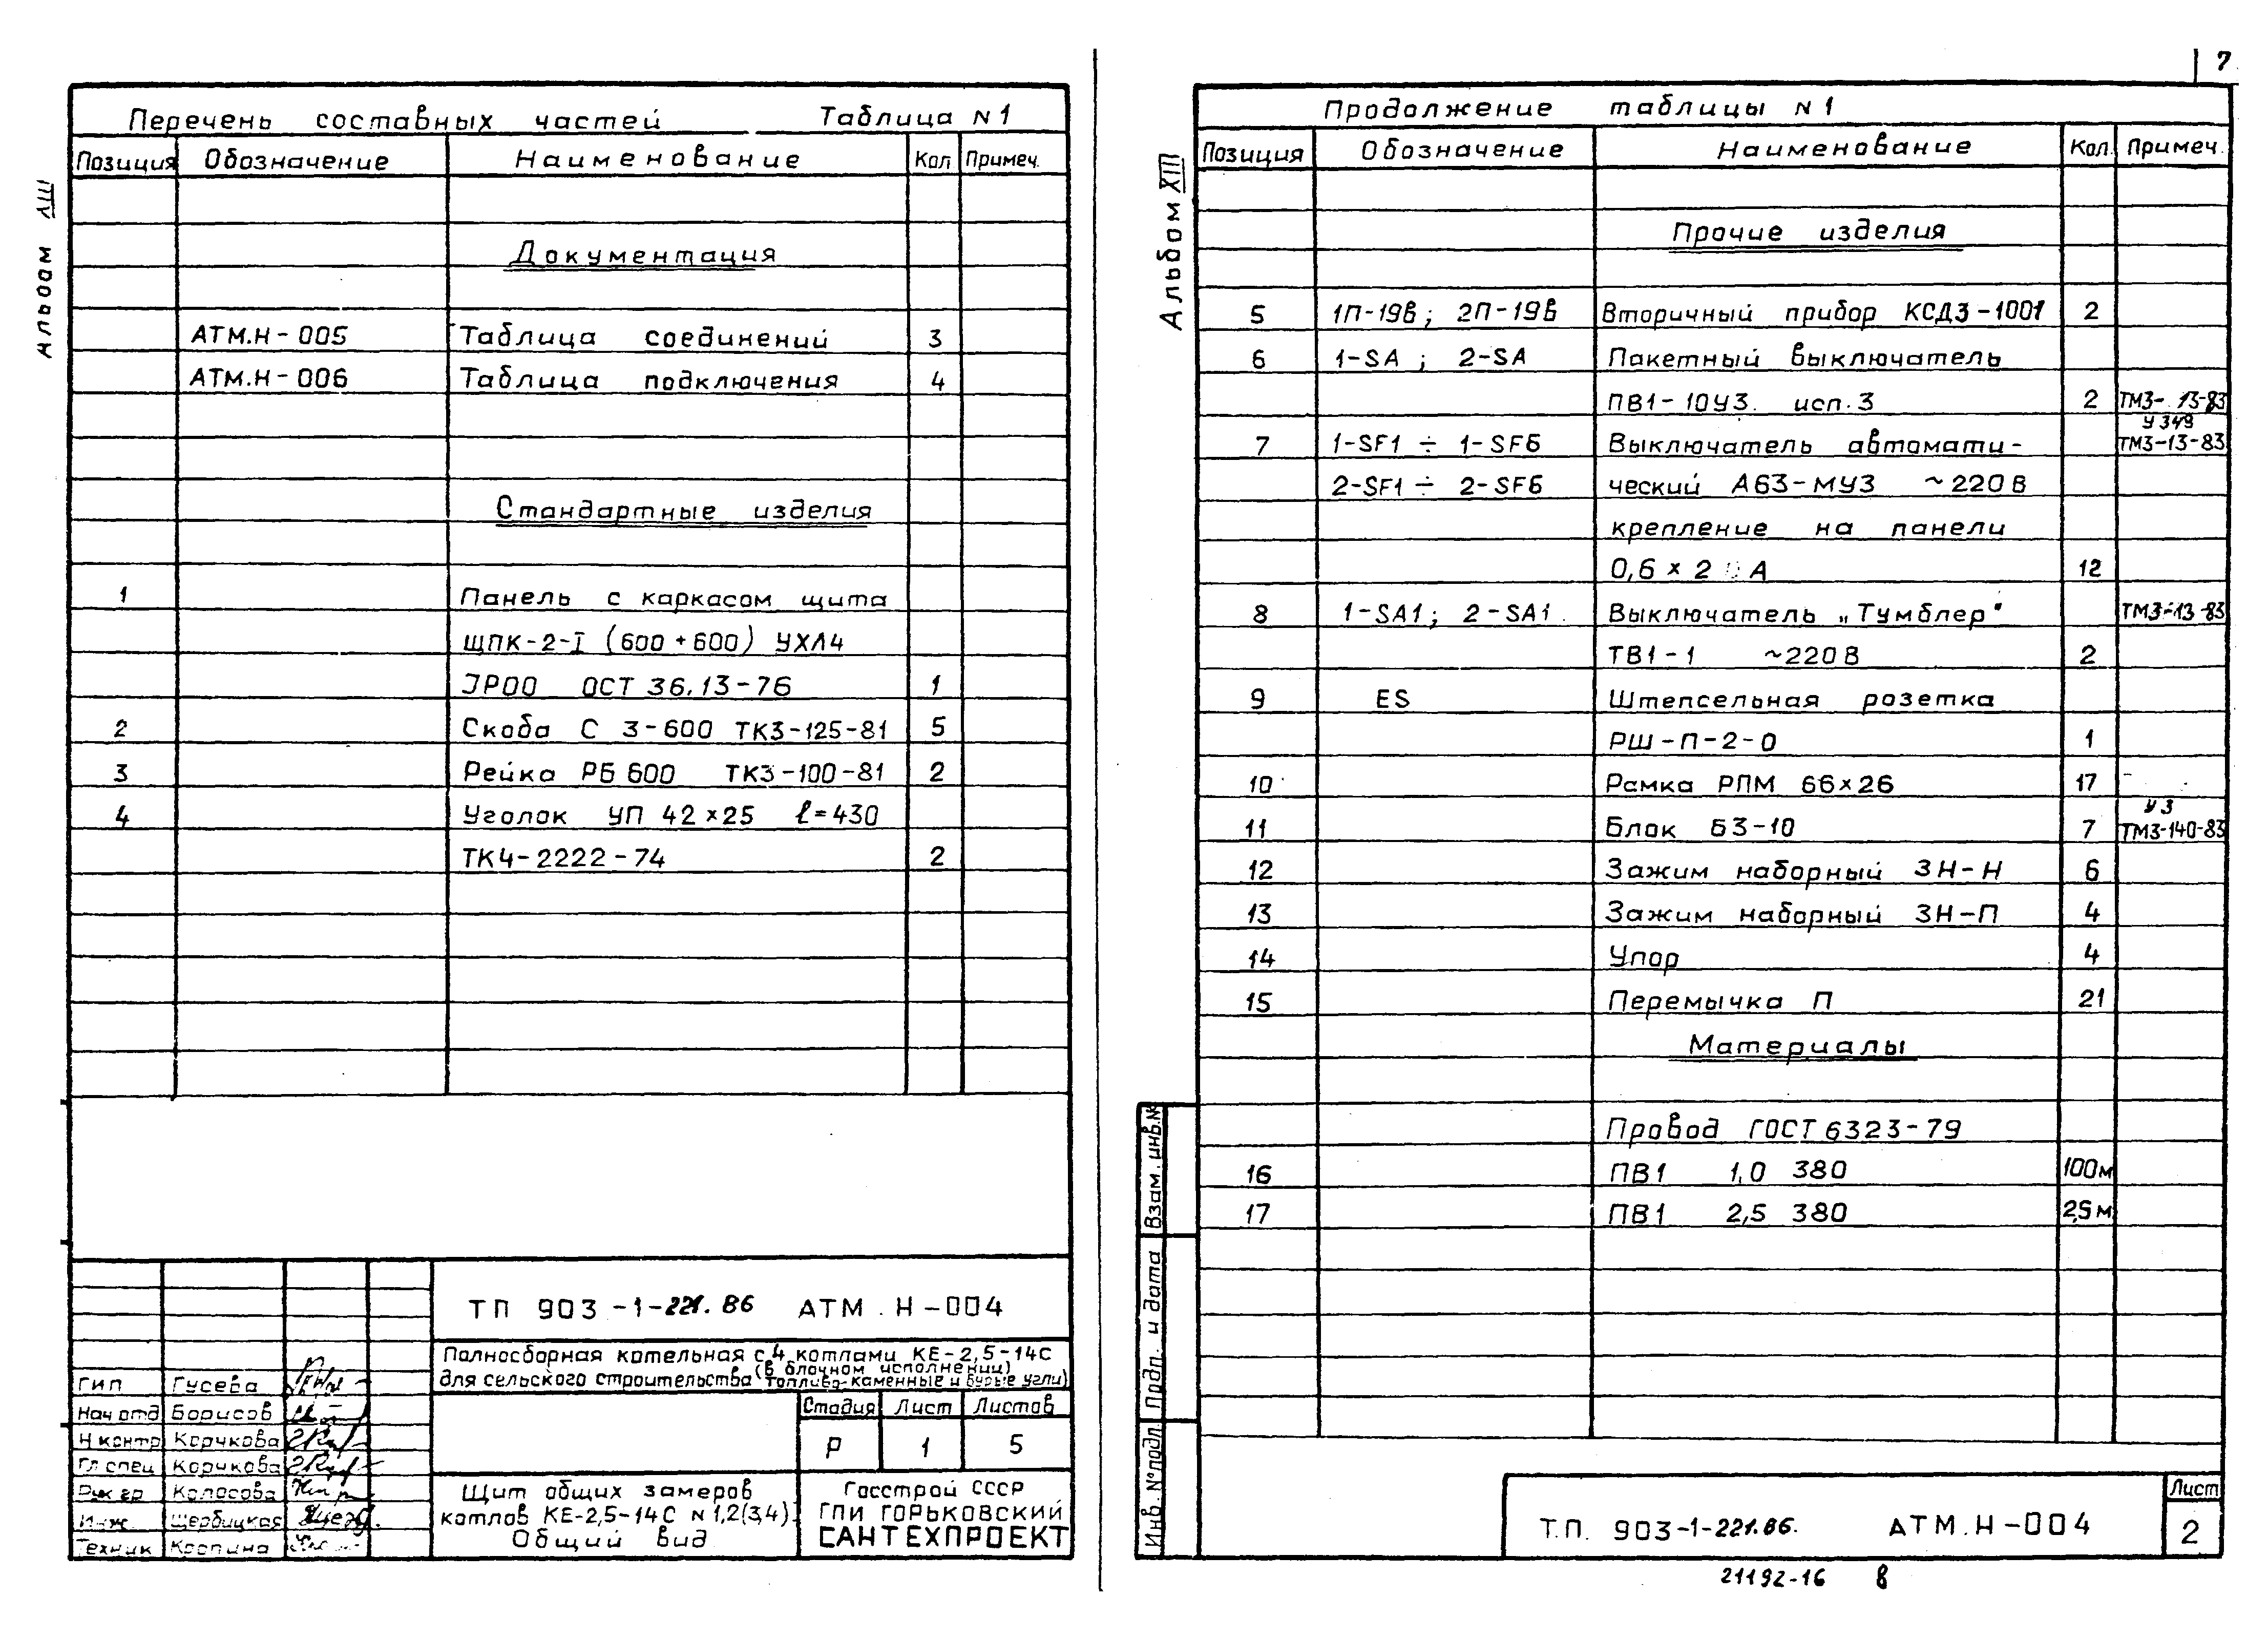 7
Альбом XIII
Перечень составных частей Таблица N1
Позиция Обозначение Наименование Кол Примеч.
Документация
АТМ.Н-005 Таблица соединений 3
АТМ.Н-006 Таблица подключения 4
Стандартные изделия
1 Панель с каркасом щита
ЩПК-2-I (600+600) УХЛ4
JP00 ОСТ 36.13-76 1
2 Скоба С 3-600 ТК3-125-81 5
3 Рейка РБ 600 ТК3-100-81 2
4 Уголок УП 42×25 ℓ=430
ТК4-2222-74 2
ТП 903-1-221.86 АТМ.Н-004
Полносборная котельная с 4 котлами КЕ-2,5-14С
(в блочном исполнении)
для сельского строительства топливо-каменные и бурые угли)
ГИП Гусева
Нач отд Борисов
Н контр Корчкова
Гл спец Корчкова
Рук гр Колосова
Инж. Щербицкая
Техник
Стадия Лист Листов
Р 1 5
Щит общих замеров
котлов КЕ-2,5-14С N 1,2(3,4).
Общий вид
Госстрой СССР
ГПИ ГОРЬКОВСКИЙ
САНТЕХПРОЕКТ
Альбом XIII
Продолжение таблицы N1
Позиция Обозначение Наименование Кол. Примеч.
Прочие изделия
5 1П-19в; 2П-19в Вторичный прибор КСД3-1001 2
6 1-SA; 2-SA Пакетный выключатель
ПВ1-10У3. исп.3 2 ТМ3-13-83
У 349
7 1-SF1 ÷ 1-SF6 Выключатель автомати- ТМ3-13-83
2-SF1 ÷ 2-SF6 ческий А63-МУ3 ~220В
крепление на панели
0,6 × 2 А 12
8 1-SA1; 2-SA1. Выключатель „Тумблер" ТМ3-13-83
ТВ1-1 ~220В 2
9 ES Штепсельная розетка
РШ-П-2-0 1
10 Рамка РПМ 66×26 17
У3
11 Блок Б3-10 7 ТМ3-140-83
12 Зажим наборный ЗН-Н 6
13 Зажим наборный ЗН-П 4
14 Упор 4
15 Перемычка П 21
Материалы
Провод ГОСТ 6323-79
16 ПВ1 1,0 380 100м
17 ПВ1 2,5 380 2,5м
Взам. инв.№
Подп. и дата
Инв. №подл.
Т.П. 903-1-221.86. АТМ.Н-004
Лист
2
21192-16 8